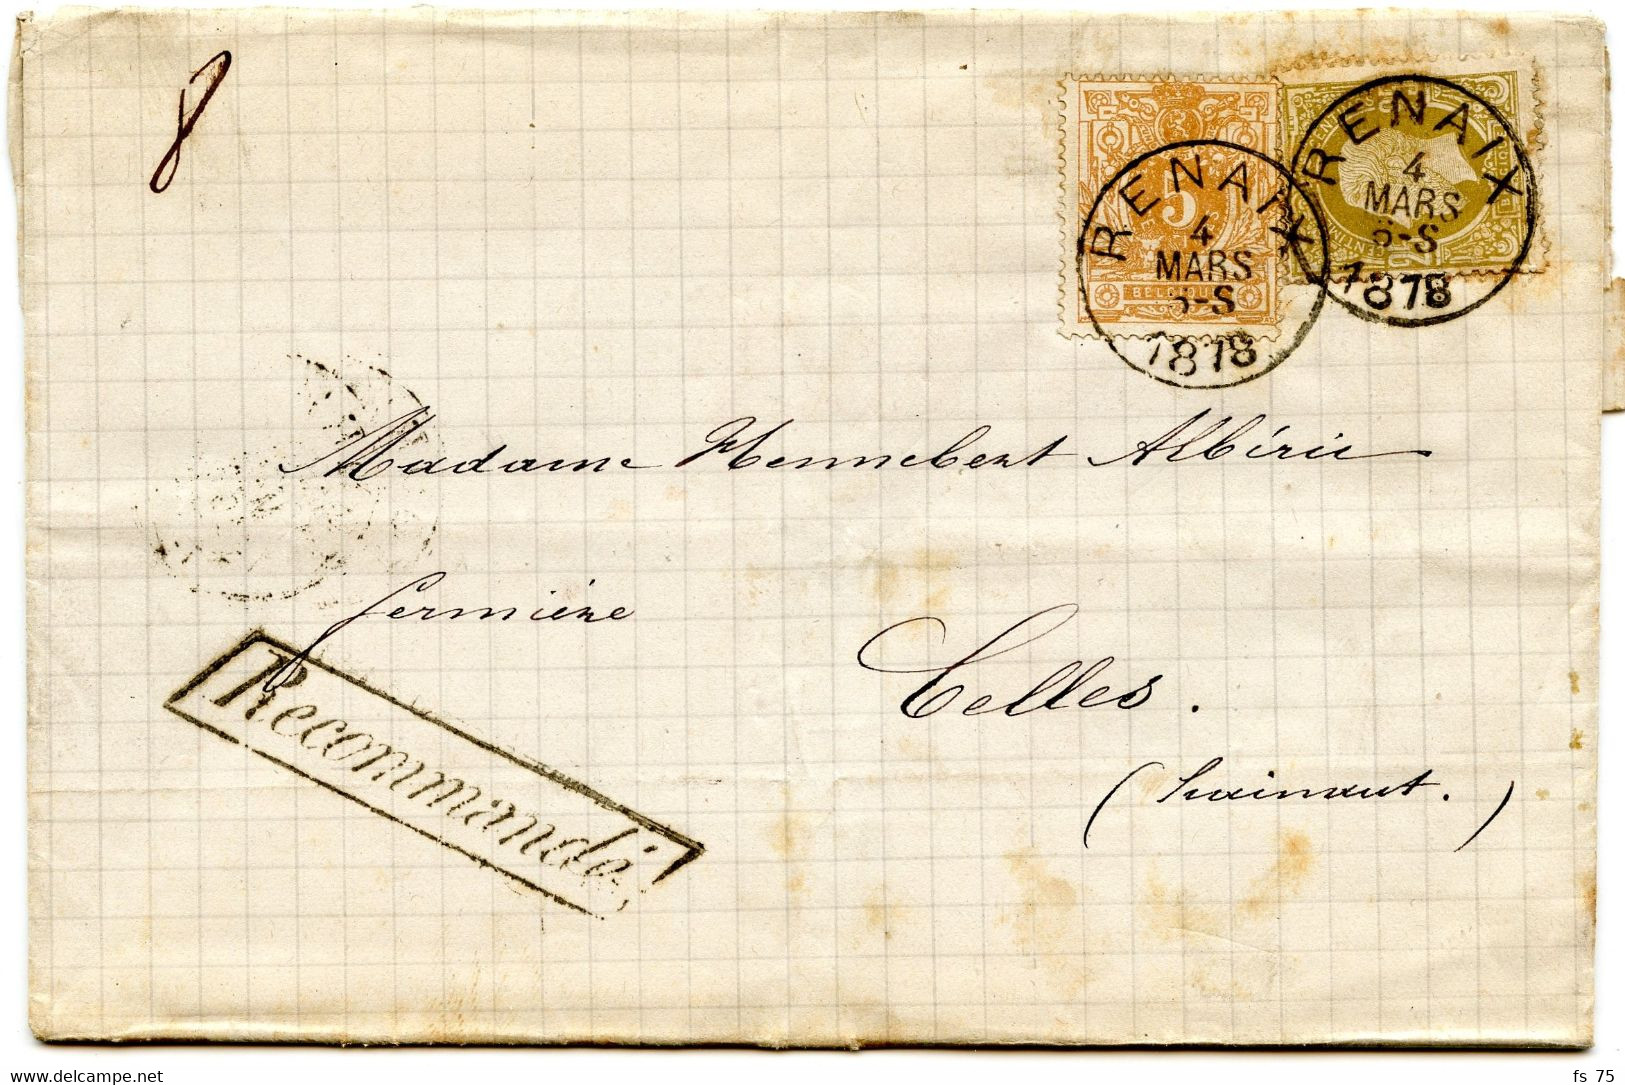 8
RENAIX
4
MARS
6-S
1878
RENAIX
4
MARS
6-S
1878
5
BELGIQUE
Madame Hennebert Albéric
fermière
Celles.
(hainaut.)
Recommandé
delcampe.net
fs 75